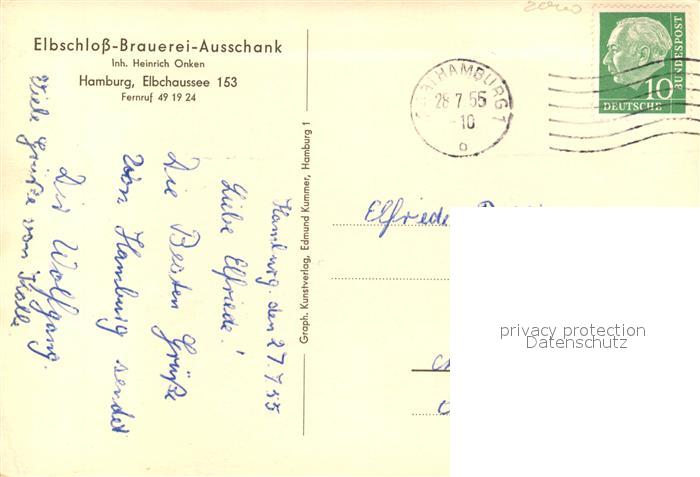 Elbschloß-Brauerei-Ausschank
Inh. Heinrich Onken
Hamburg, Elbchaussee 153
Fernruf 49 19 24
Hamburg, den 27.7.55
Liebe Elfriede!
Die Besten Grüße
von Hamburg sendet
Dir Wolfgang.
Viele Grüße von Kalle
Graph. Kunstverlag, Edmund Kummer, Hamburg 1
HAMBURG 1
28.7.55
-10
o
10
DEUTSCHE
BUNDESPOST
Elfriede
privacy protection
Datenschutz